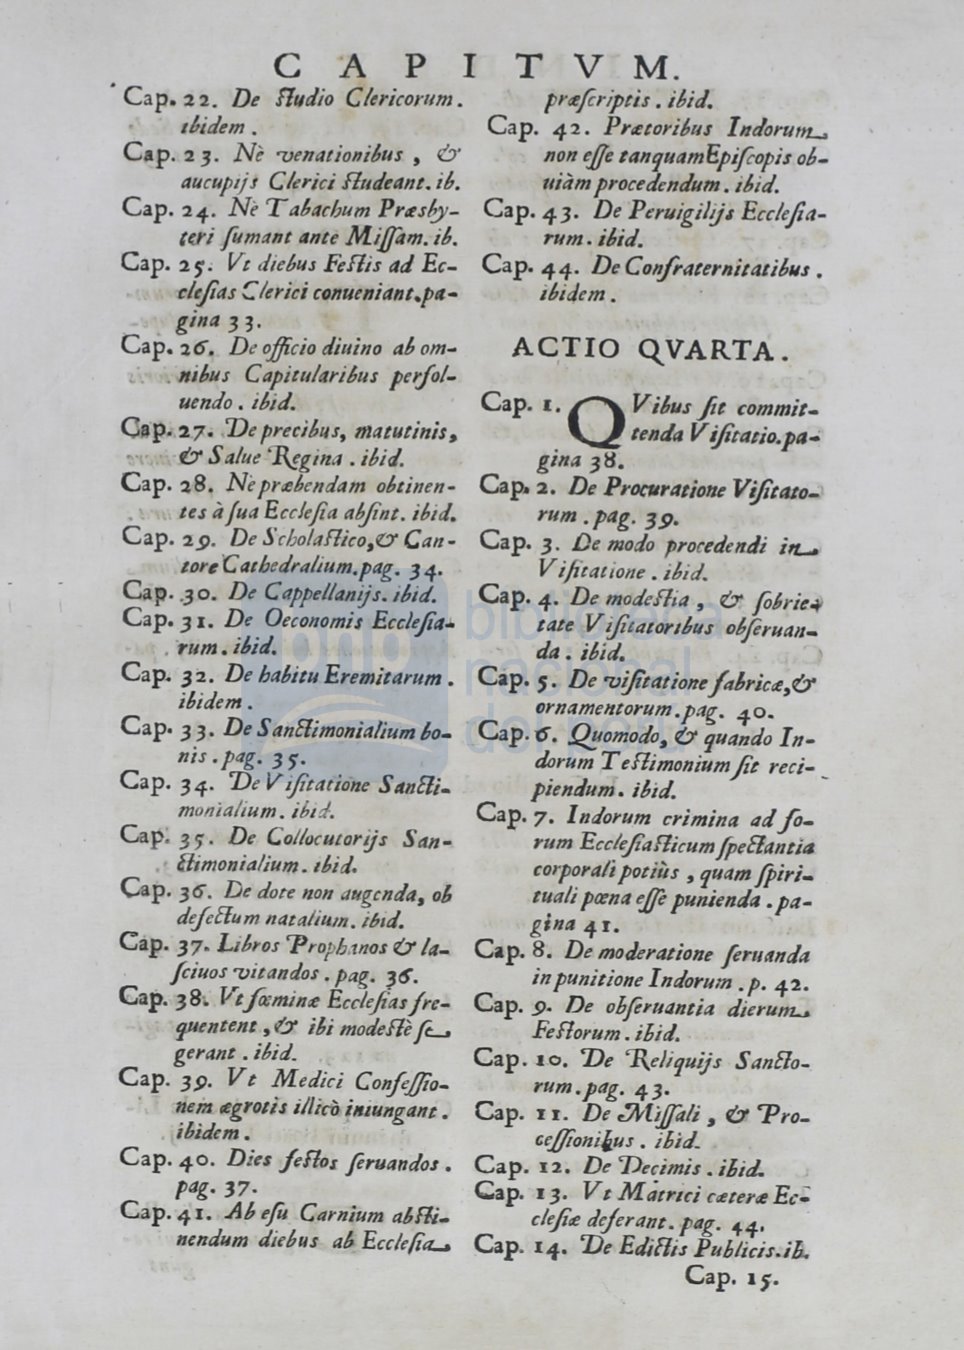 CAPITVM.
Cap. 22. De ſtudio Clericorum.
ibidem.
Cap. 23. Nè venationibus, &
aucupijs Clerici ſtudeant. ib.
Cap. 24. Nè Tabachum Præsby-
teri ſumant ante Miſſam. ib.
Cap. 25. Vt diebus Feſtis ad Ec-
cleſias Clerici conueniant. pa-
gina 33.
Cap. 26. De officio diuino ab om-
nibus Capitularibus perſol-
uendo. ibid.
Cap. 27. De precibus, matutinis,
& Salue Regina. ibid.
Cap. 28. Nè præbendam obtinen-
tes à ſua Eccleſia abſint. ibid.
Cap. 29. De Scholaſtico, & Can-
tore Cathedralium. pag. 34.
Cap. 30. De Cappellanijs. ibid.
Cap. 31. De Oeconomis Eccleſia-
rum. ibid.
Cap. 32. De habitu Eremitarum.
ibidem.
Cap. 33. De Sanctimonialium bo-
nis. pag. 35.
Cap. 34. De Viſitatione Sancti-
monialium. ibid.
Cap. 35. De Collocutorijs San-
ctimonialium. ibid.
Cap. 36. De dote non augenda, ob
defectum natalium. ibid.
Cap. 37. Libros Prophanos & la-
ſciuos vitandos. pag. 36.
Cap. 38. Vt fœminæ Eccleſias fre-
quentent, & ibi modeſtè ſe
gerant. ibid.
Cap. 39. Vt Medici Confeſſio-
nem ægrotis illicò iniungant.
ibidem.
Cap. 40. Dies feſtos ſeruandos.
pag. 37.
Cap. 41. Ab eſu Carnium abſti-
nendum diebus ab Eccleſia
præſcriptis. ibid.
Cap. 42. Prætoribus Indorum
non eſſe tanquam Epiſcopis ob-
uiàm procedendum. ibid.
Cap. 43. De Peruigilijs Eccleſia-
rum. ibid.
Cap. 44. De Confraternitatibus.
ibidem.
ACTIO QVARTA.
Cap. 1. QVibus ſit commit-
tenda Viſitatio. pa-
gina 38.
Cap. 2. De Procuratione Viſitato-
rum. pag. 39.
Cap. 3. De modo procedendi in
Viſitatione. ibid.
Cap. 4. De modeſtia, & ſobrie-
tate Viſitatoribus obſeruan-
da. ibid.
Cap. 5. De viſitatione fabricæ, &
ornamentorum. pag. 40.
Cap. 6. Quomodo, & quando In-
dorum Teſtimonium ſit reci-
piendum. ibid.
Cap. 7. Indorum crimina ad fo-
rum Eccleſiaſticum ſpectantia
corporali potiùs, quam ſpiri-
tuali pœna eſſe punienda. pa-
gina 41.
Cap. 8. De moderatione ſeruanda
in punitione Indorum. p. 42.
Cap. 9. De obſeruantia dierum
Feſtorum. ibid.
Cap. 10. De Reliquijs Sancto-
rum. pag. 43.
Cap. 11. De Miſſali, & Pro-
ceſſionibus. ibid.
Cap. 12. De Decimis. ibid.
Cap. 13. Vt Matrici cæteræ Ec-
cleſiæ deferant. pag. 44.
Cap. 14. De Edictis Publicis. ib.
Cap. 15.
biblioteca
nacional
del perú